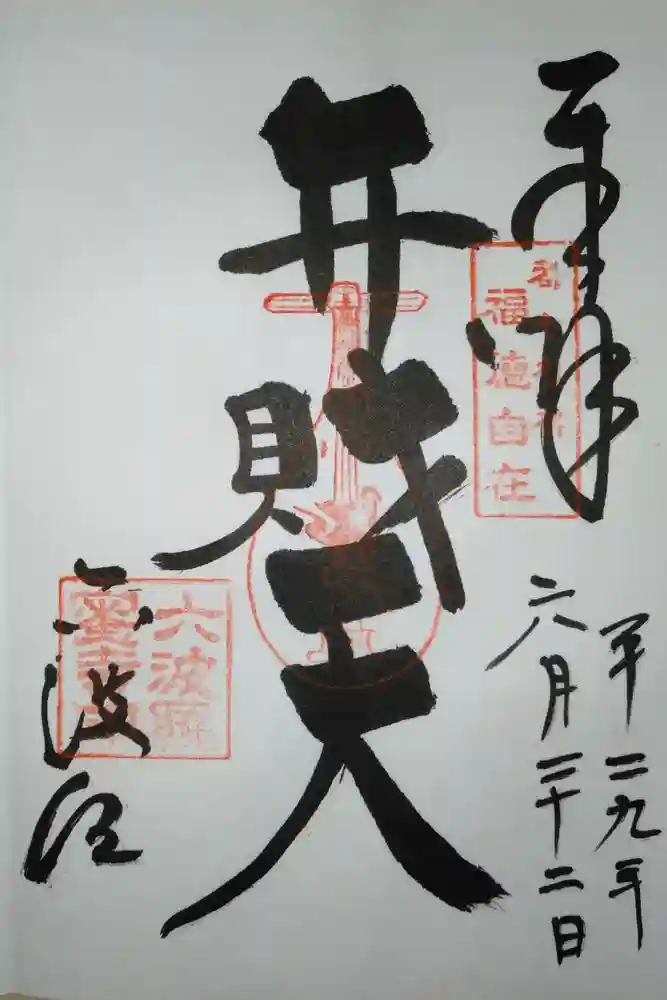 奉拝
都七福神
福徳自在
平二九年
六月二十二日
弁財天
六波羅
六波羅
蜜寺印